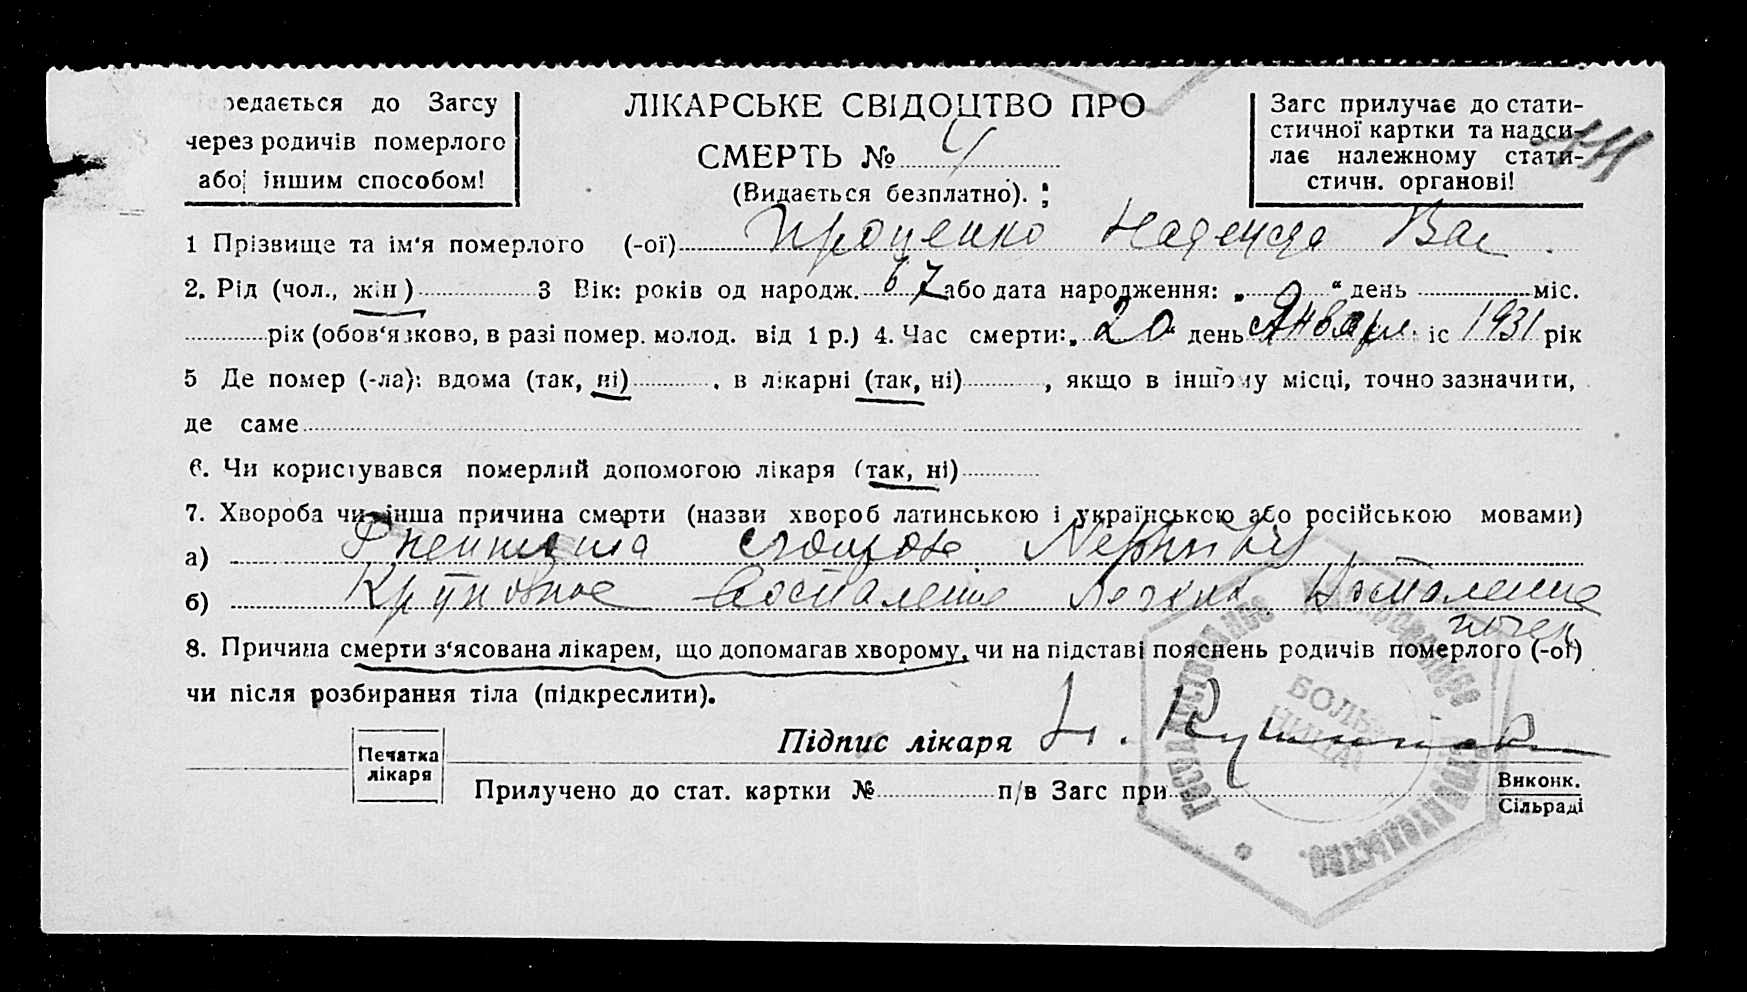 редається до Загсу
через родичів померлого
або іншим способом!
ЛІКАРСЬКЕ СВІДОЦТВО ПРО
СМЕРТЬ № 4
(Видається безплатно).
Загс прилучає до стати-
стичної картки та надси-
лає належному стати-
стичн. органові!
1 Прізвище та ім'я померлого (-ої) Проценко Надежда Вас
2. Рід (чол., жін) 3 Вік: років од народж. 67 або дата народження: „ “ день міс.
рік (обов'язково, в разі помер. молод. від 1 р.) 4. Час смерти: „20“ день Января міс 1931 рік
5 Де помер (-ла): вдома (так, ні) , в лікарні (так, ні) , якщо в іншому місці, точно зазначити,
де саме
6. Чи користувався померлий допомогою лікаря (так, ні)
7. Хвороба чи інша причина смерти (назви хвороб латинською і українською або російською мовами)
а) Pneumonia crouposa Nephritis
б) Крупозное воспаление легких Воспаление
почек
8. Причина смерти з'ясована лікарем, що допомагав хворому, чи на підставі пояснень родичів померлого (-ої)
чи після розбирання тіла (підкреслити).
Підпис лікаря
Печатка
лікаря
Прилучено до стат. картки № п/в Загс при
Виконк.
Сільраді
БОЛЬ
НИЦА